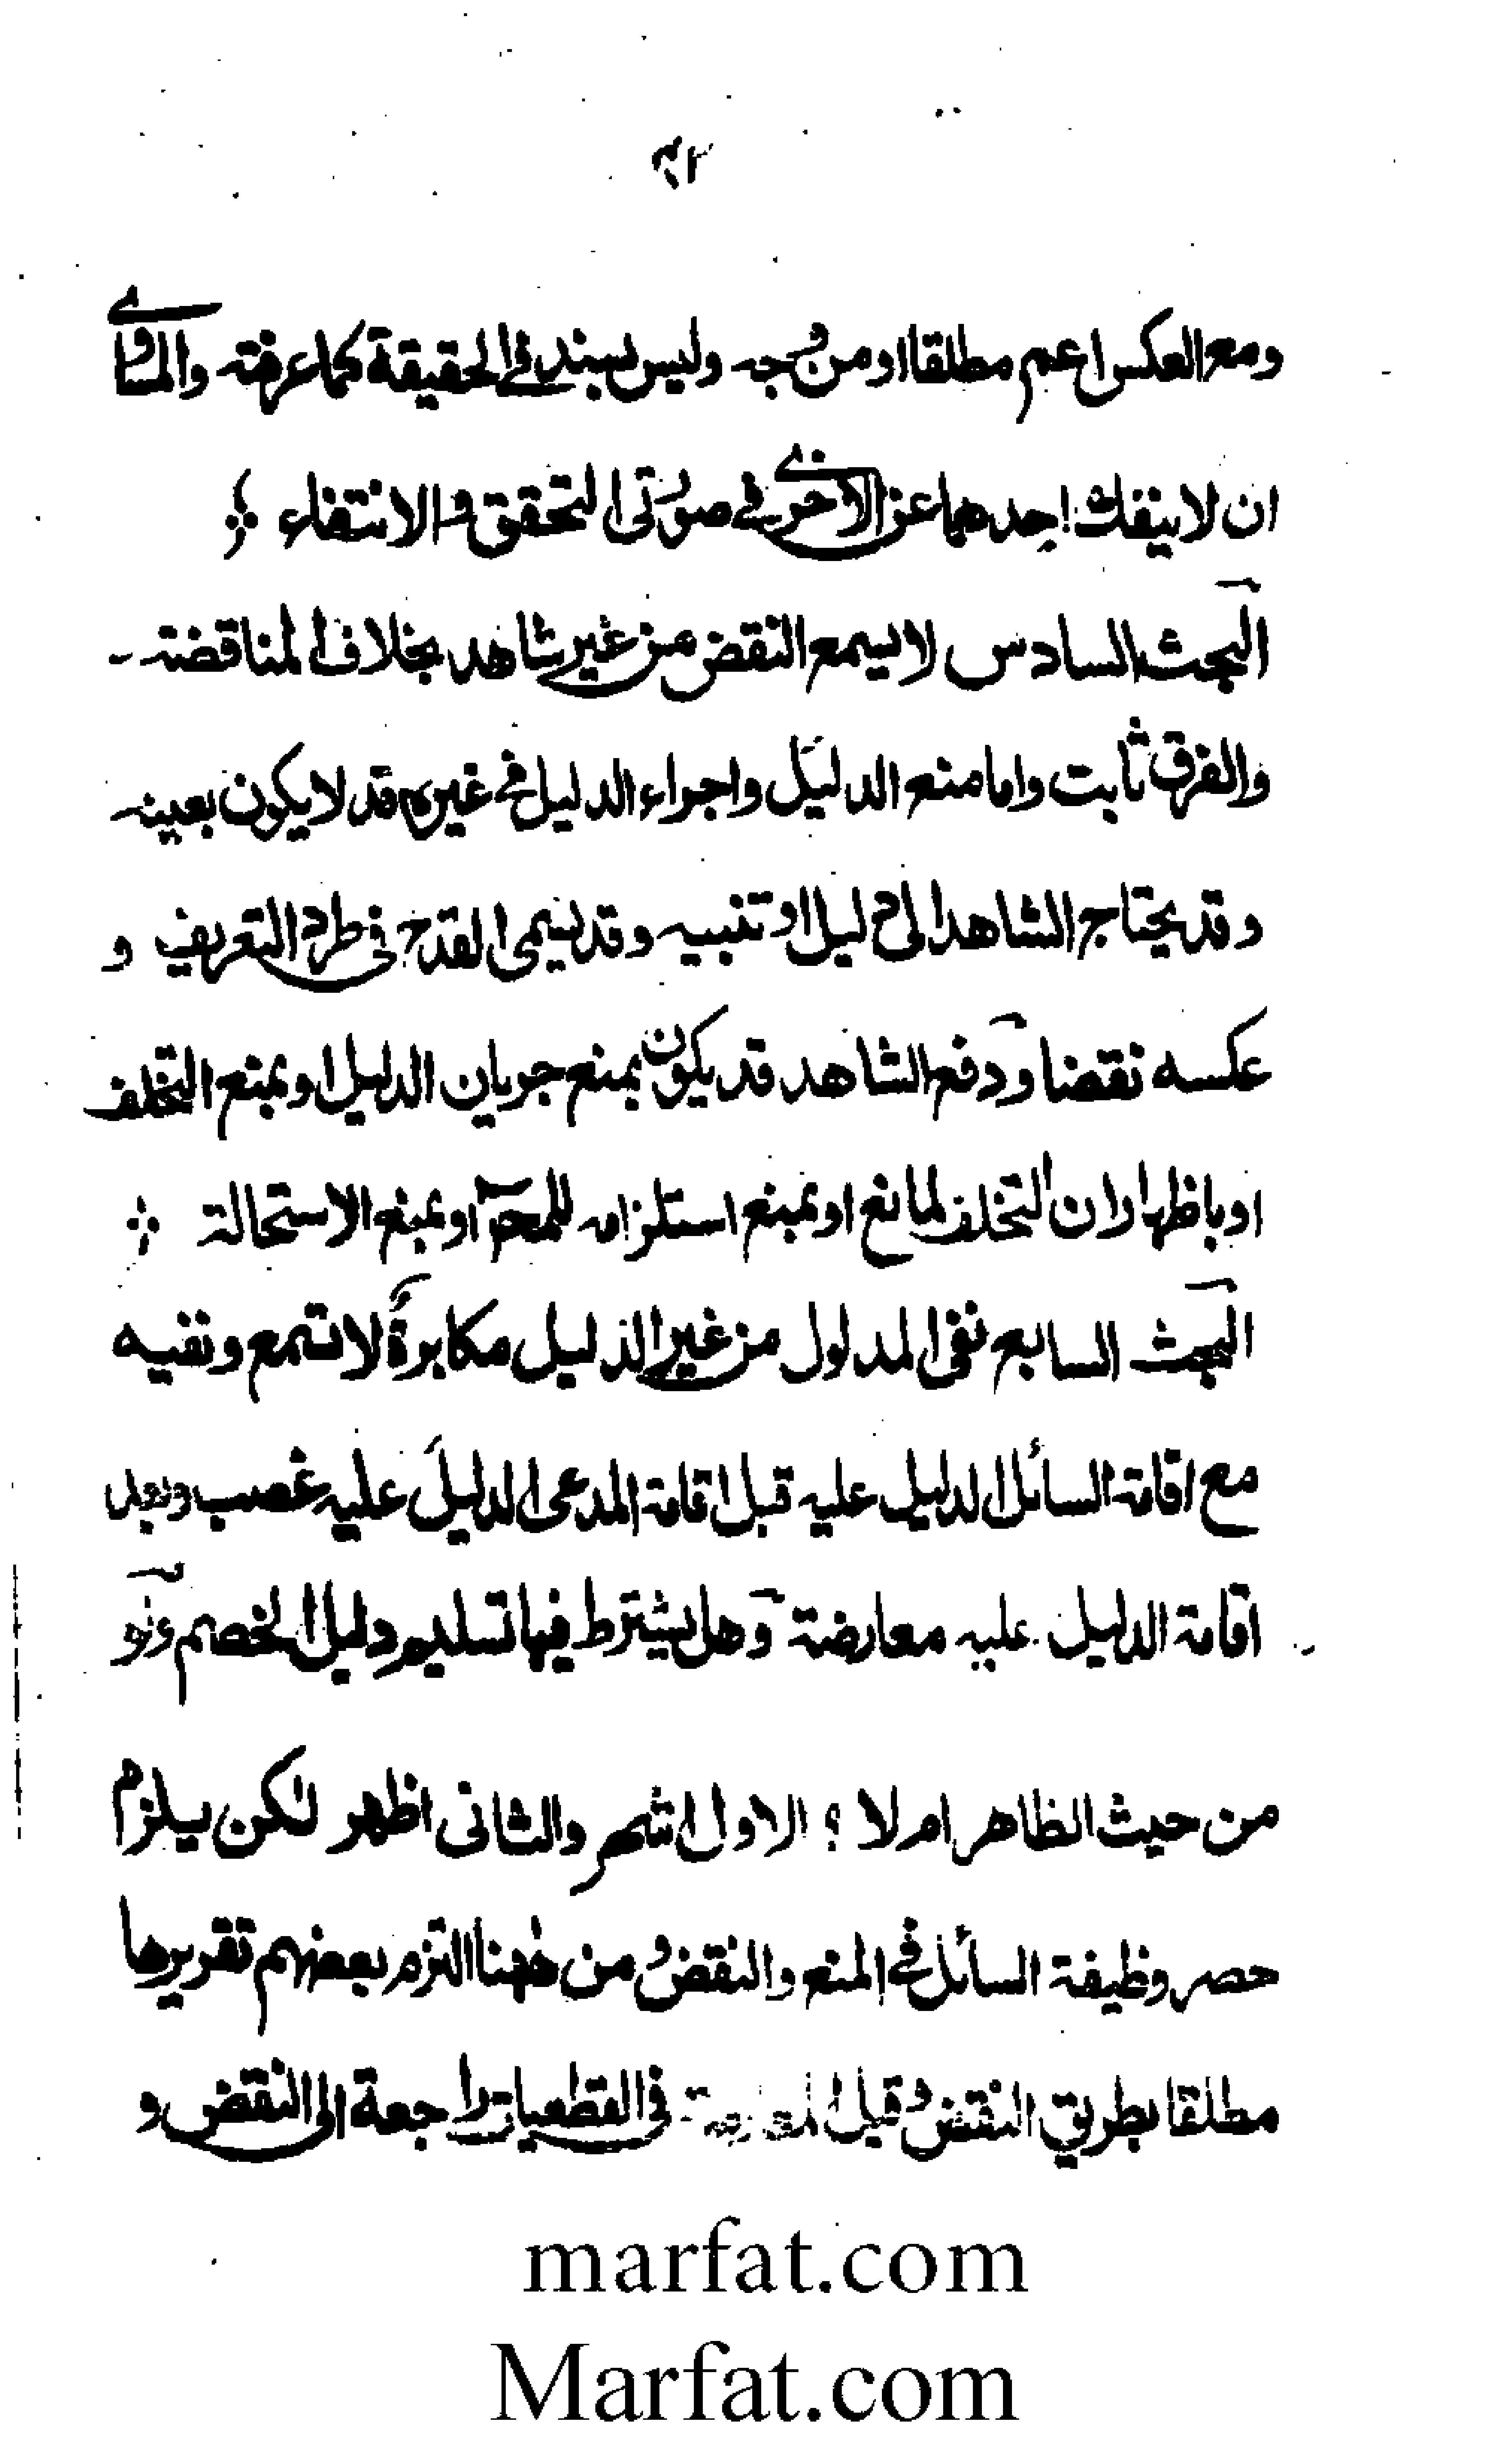 ومع العكس اعم مطلقا او من وجه وليس بسند في الحقيقة كما عرفته والمساوى
ان لا ينفك احدهما عن الاخرى في صورتى التحقق والانتفاء
البحث السادس لا يسمع النقض من غير شاهد بخلاف المناقضة -
والفرق ثابت واما منع الدليل واجراء الدليل في غيره قد لا يكون بعينه
وقد يحتاج الشاهد الى دليل او تنبيه وقد يسمى القدح في طرد التعريف و
عكسه نقضا ودفع الشاهد قد يكون بمنع جريان الدليل او بمنع التخلف
او باظهار ان التخلف لمانع او بمنع استلزامه للمحال او بمنع الاستحالة
البحث السابع نفى المدلول من غير الدليل مكابرة لا تسمع ونفيه
مع اقامة السائل الدليل عليه قبل اقامة المدعى الدليل عليه غصب وبعد
اقامة الدليل عليه معارضة وهل يشترط فيها تسليم دليل الخصم ولو
من حيث الظاهر ام لا ؟ الاول اشهر والثانى اظهر لكن يلزم
حصر وظيفة السائل في المنع والنقض ومن ههنا التزم بعضهم تقريرها
مطلقا بطريق النقض وقيل في القطعيات راجعة الى النقض و
marfat.com
Marfat.com